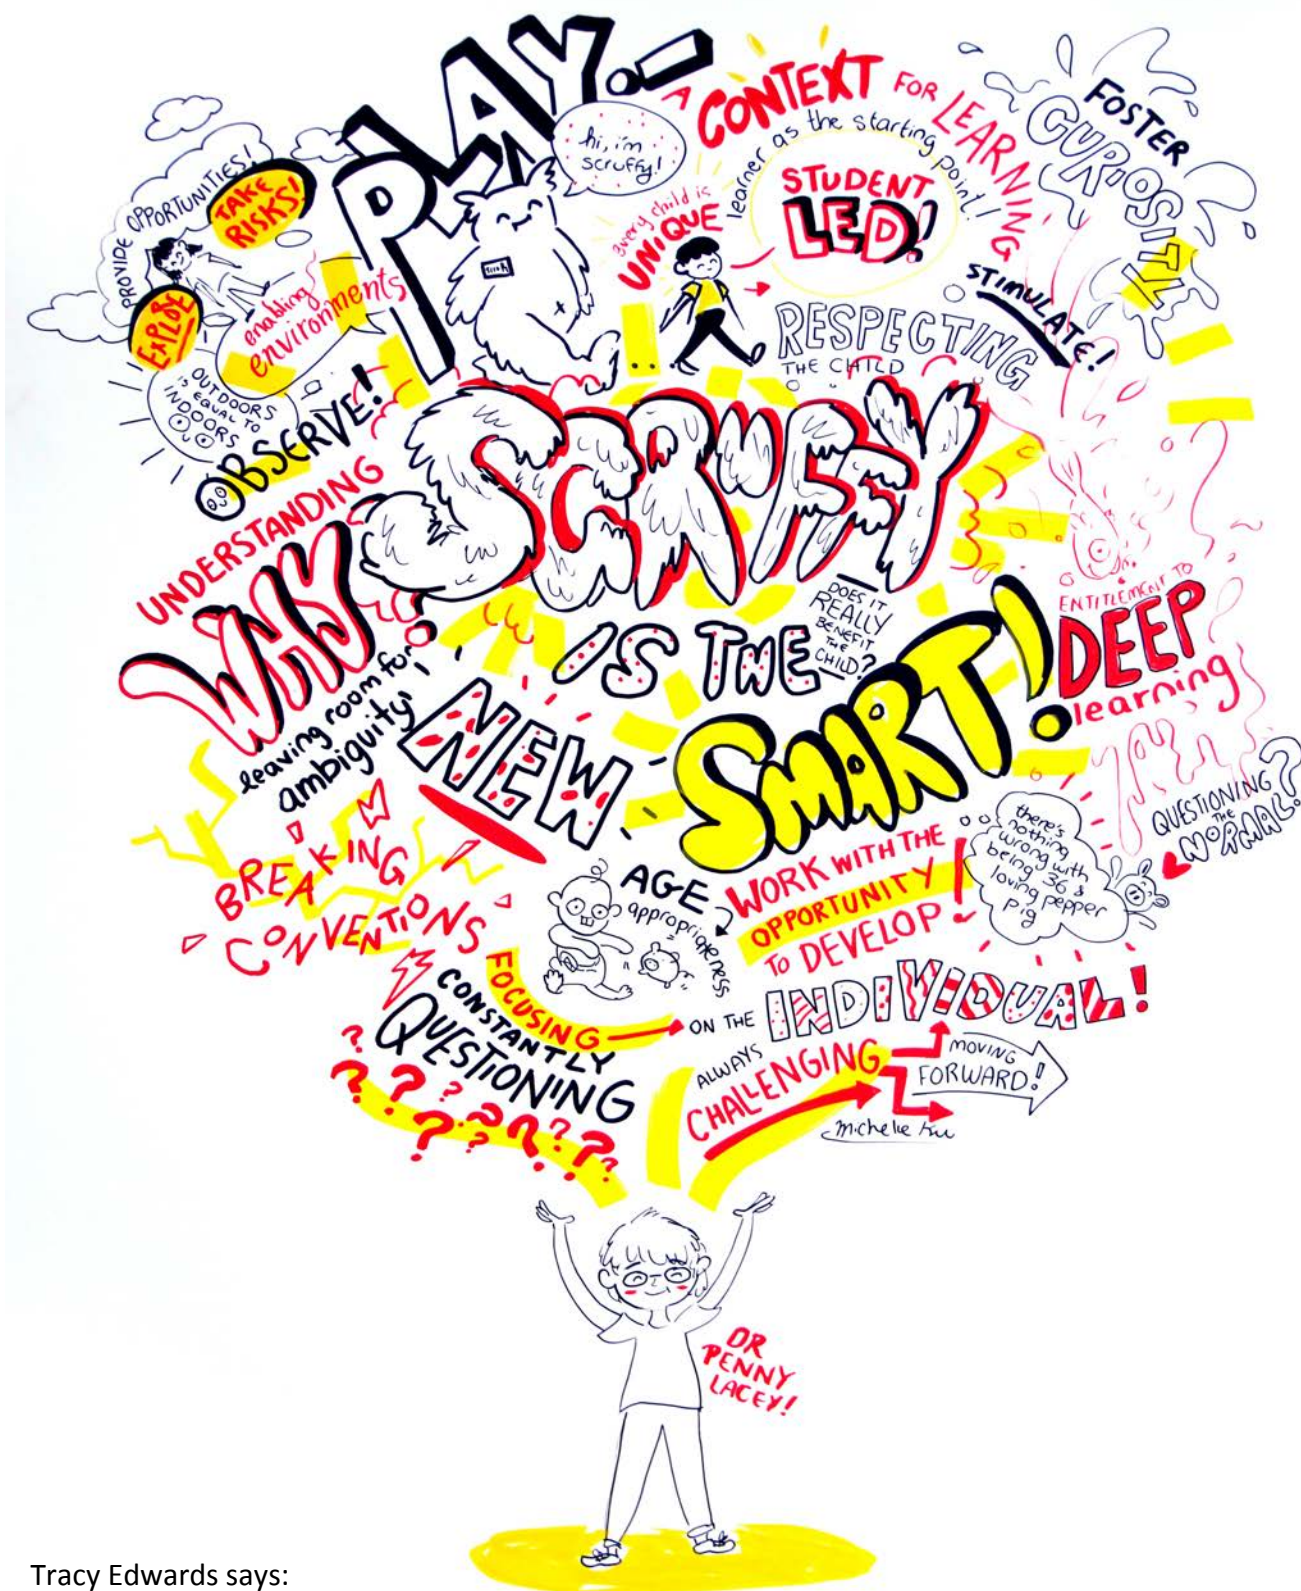 PLAY!
hi, i'm
scruffy!
A CONTEXT FOR LEARNING
learner as the starting point!
STUDENT
LED!
every child is
UNIQUE
FOSTER
CURIOSITY
STIMULATE!
RESPECTING
THE CHILD
PROVIDE OPPORTUNITIES!
TAKE
RISKS!
EXPLORE
enabling
environments
OUTDOORS
IS EQUAL TO
INDOORS
OBSERVE!
UNDERSTANDING
WHY
SCRUFFY
IS THE
NEW
SMART!
DOES IT
REALLY
BENEFIT
THE
CHILD?
ENTITLEMENT TO
DEEP
learning
leaving room for
ambiguity
BREAKING
CONVENTIONS
AGE
appropriateness
WORK WITH THE
OPPORTUNITY
TO DEVELOP!
there's
nothing
wrong with
being 36 &
loving pepper
pig
QUESTIONING
THE
NORMAL?
FOCUSING
ON THE INDIVIDUAL!
CONSTANTLY
QUESTIONING
? ? ? ? ? ? ? ? ? ? ?
ALWAYS
CHALLENGING
MOVING
FORWARD!
DR
PENNY
LACEY!
Tracy Edwards says: